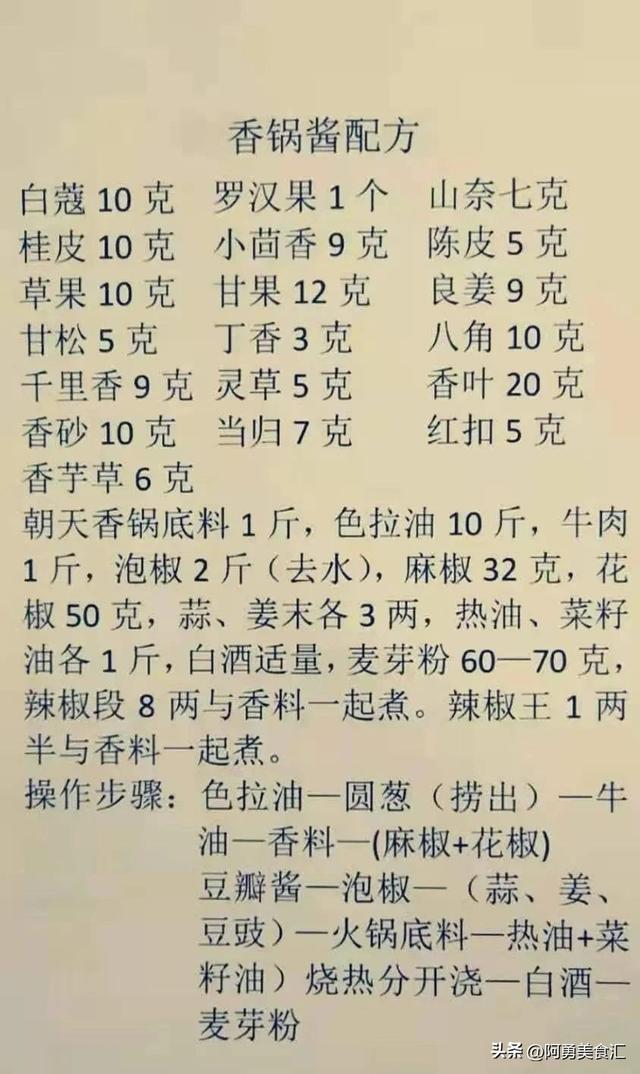 香锅酱配方
白蔻 10 克 罗汉果 1 个 山奈七克
桂皮 10 克 小茴香 9 克 陈皮 5 克
草果 10 克 甘果 12 克 良姜 9 克
甘松 5 克 丁香 3 克 八角 10 克
千里香 9 克 灵草 5 克 香叶 20 克
香砂 10 克 当归 7 克 红扣 5 克
香芋草 6 克
朝天香锅底料 1 斤，色拉油 10 斤，牛肉
1 斤，泡椒 2 斤（去水），麻椒 32 克，花
椒 50 克，蒜、姜末各 3 两，热油、菜籽
油各 1 斤，白酒适量，麦芽粉 60—70 克，
辣椒段 8 两与香料一起煮。辣椒王 1 两
半与香料一起煮。
操作步骤：色拉油—圆葱（捞出）—牛
油—香料—(麻椒+花椒)
豆瓣酱—泡椒—（蒜、姜、
豆豉）—火锅底料—热油+菜
籽油）烧热分开浇—白酒—
麦芽粉
头条 @阿勇美食汇